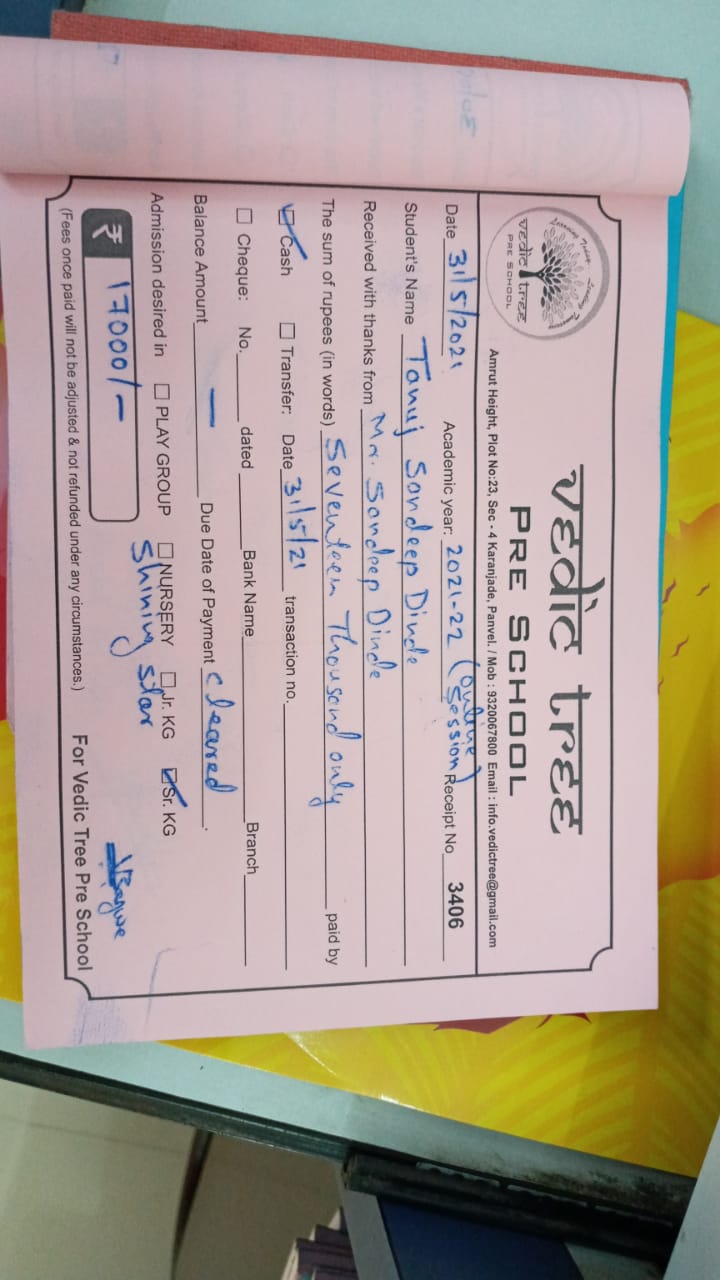 vedic tree
PRE SCHOOL
Learning Today... Leading Tomorrow
vedic tree
PRE SCHOOL
Amrut Height, Plot No:23, Sec - 4 Karanjade, Panvel. / Mob : 9320067800 Email : info.vedictree@gmail.com
Date 31/5/2021 Academic year: 2021-22 (Online Session) Receipt No 3406
Student's Name Tanuj Sandeep Dinde
Received with thanks from Mr. Sandeep Dinde
The sum of rupees (in words) Seventeen Thousand only paid by
Cash Transfer: Date 31/5/21 transaction no.
Cheque: No. dated Bank Name Branch
Balance Amount — Due Date of Payment cleared.
Admission desired in PLAY GROUP NURSERY Jr. KG Sr. KG
Shining star
₹ 17000/-
(Fees once paid will not be adjusted & not refunded under any circumstances.) For Vedic Tree Pre School